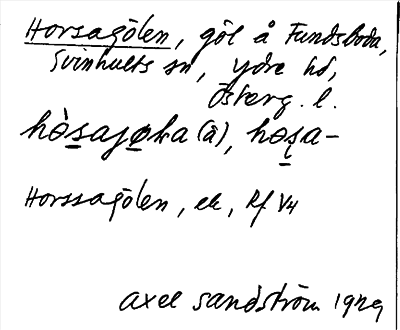 Horsagölen, göl å Fundsboda,
Svinhults sn, Ydre hd,
Österg. l.
Horssagölen, ek, Rf V4
Axel Sandström 1929